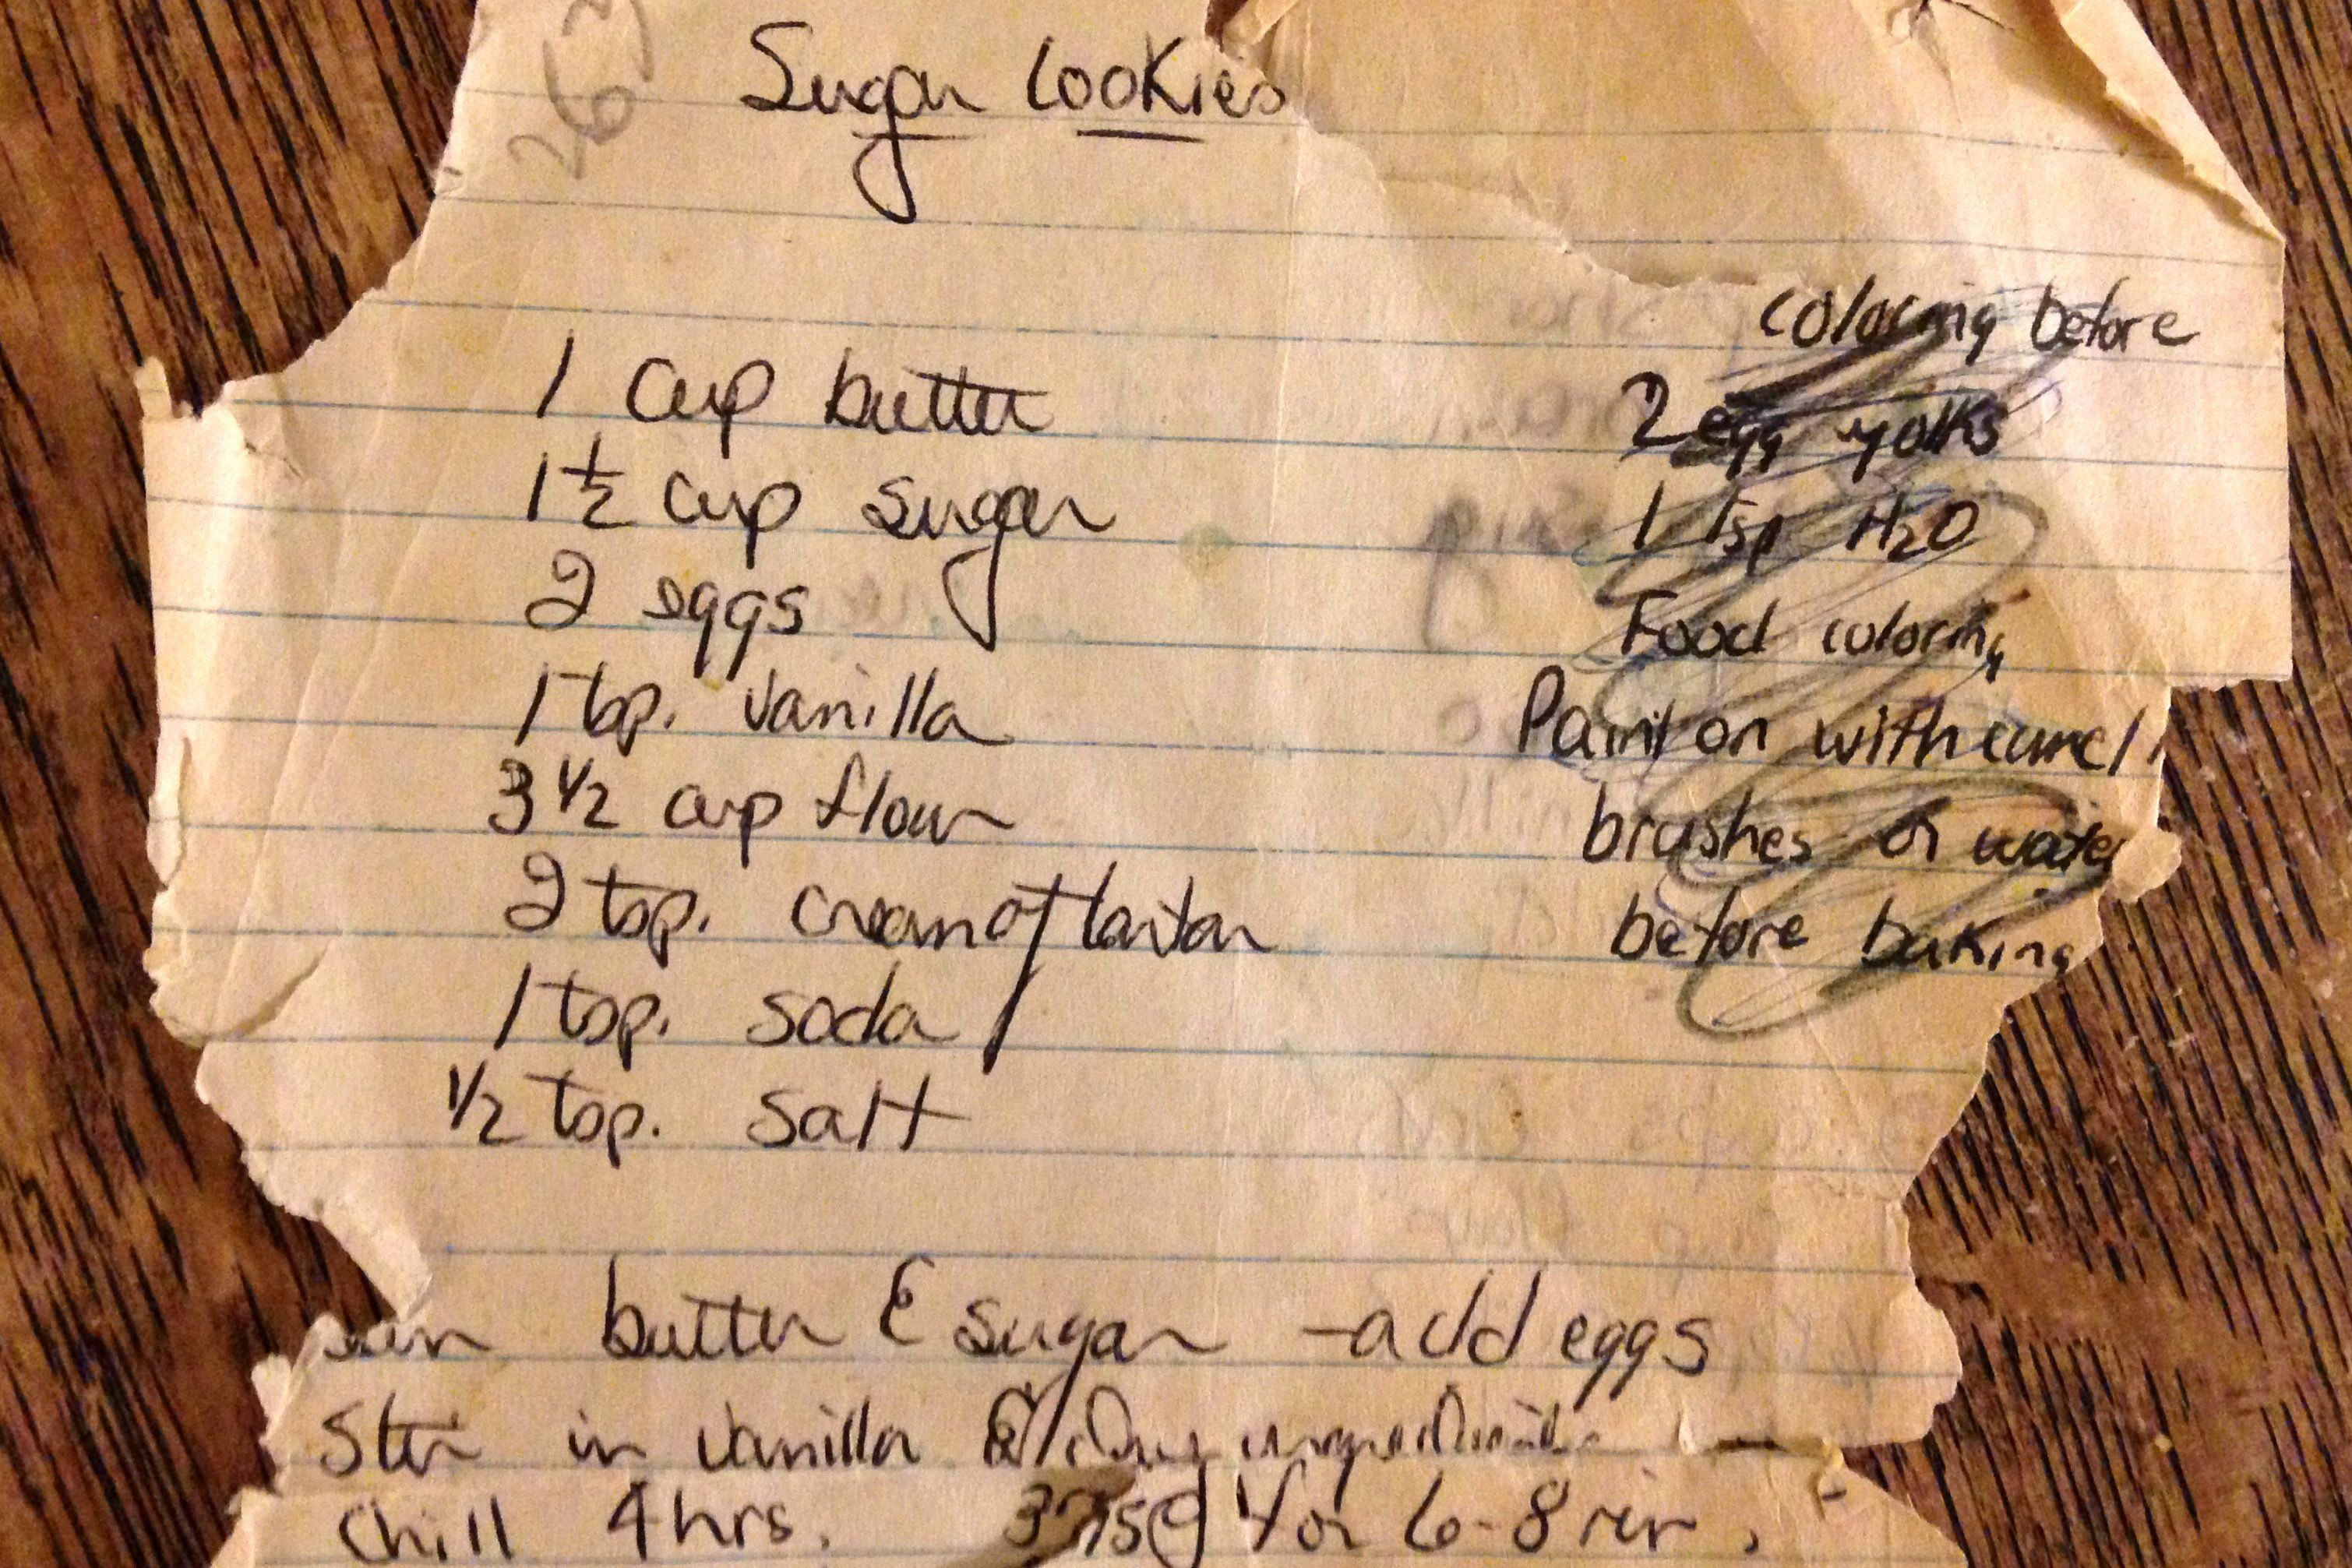 Sugar Cookies
1 cup butter
1 1/2 cup sugar
2 eggs
1 tsp. vanilla
3 1/2 cup flour
2 tsp. cream of tartar
1 tsp. soda
1/2 tsp. salt
coloring before
2 egg yolks
1 Tsp H2O
Food coloring
Paint on with camel
brushes or water
before baking
butter & sugar - add eggs
Stir in vanilla & dry ingredients
Chill 4 hrs. 375° for 6-8 min.